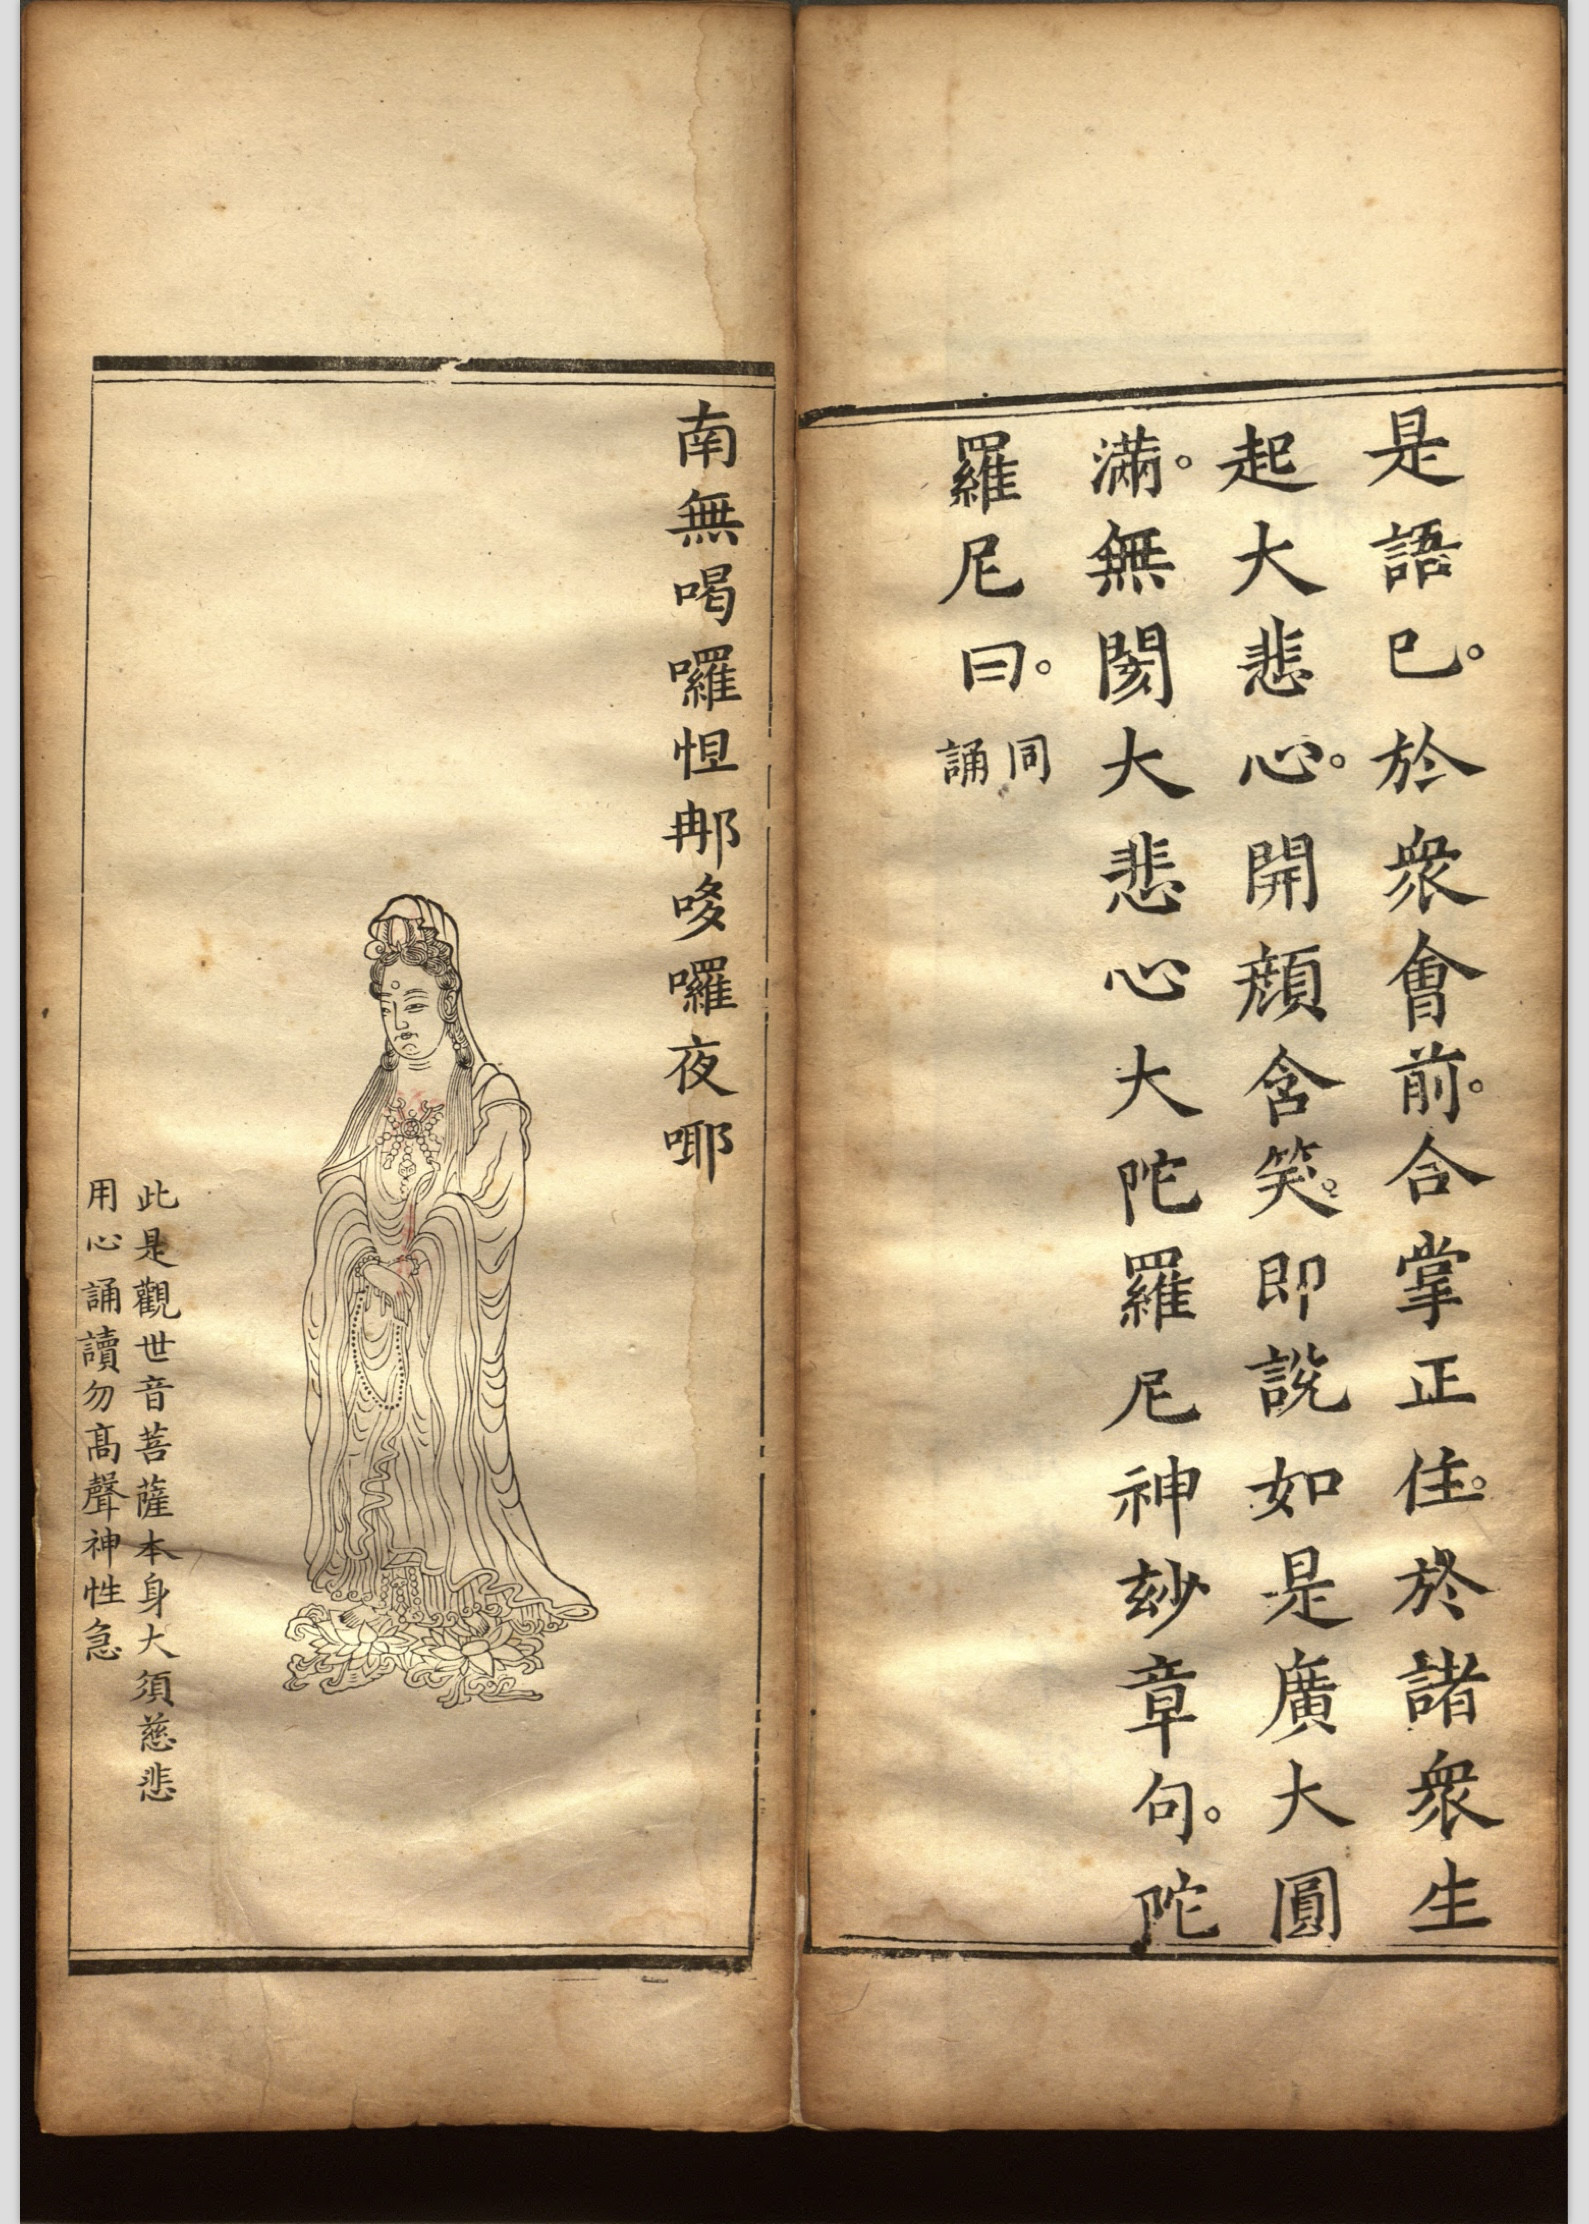 是語已。於衆會前。合掌正住。於諸衆生
起大悲心。開顔含笑。即說如是廣大圓
滿。無閡大悲心大陀羅尼神玅章句。陀
羅尼曰。同
誦
南無喝囉怛𨚗哆囉夜㖿
此是觀世音菩薩本身大須慈悲
用心誦讀勿高聲神性急